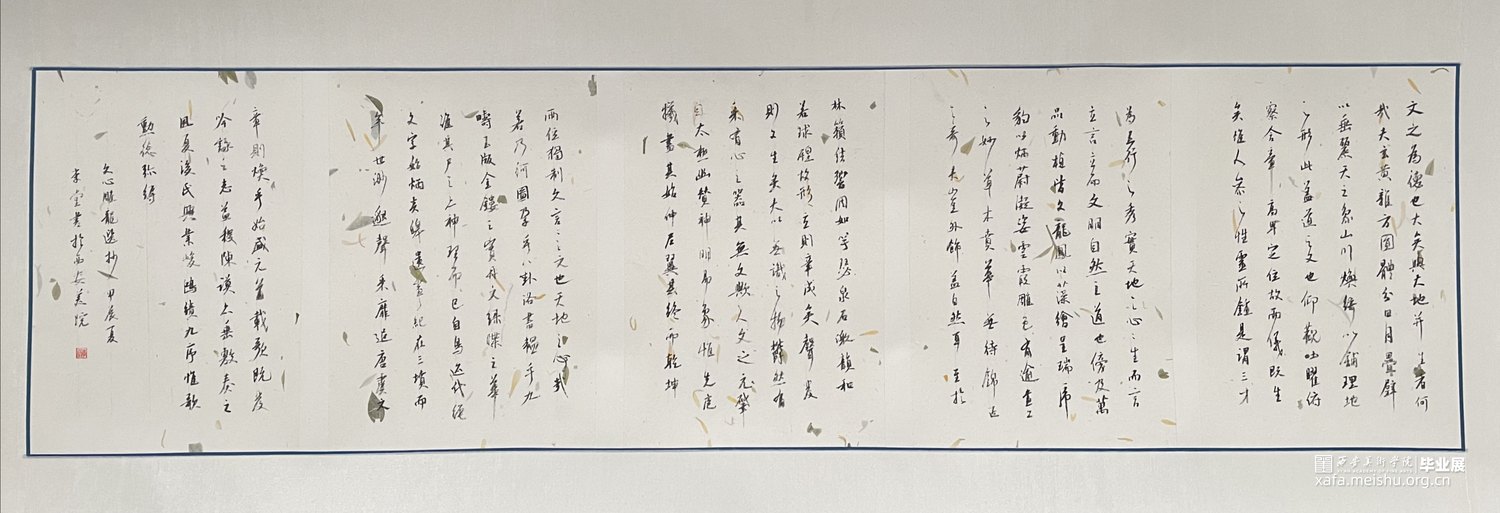 文之為德也大矣與天地并生者何
哉夫玄黃雜方圓體分日月疊璧
以垂麗天之象山川煥綺以鋪理地
之形此蓋道之文也仰觀吐曜俯
察含章高卑定位故兩儀既生
矣惟人參之性靈所鍾是謂三才
為五行之秀實天地之心心生而言
立言立而文明自然之道也傍及萬
品動植皆文龍鳳以藻繪呈瑞虎
豹以炳蔚凝姿雲霞雕色有逾畫工
之妙草木賁華無待錦匠
之奇夫豈外飾蓋自然耳至於
林籟結響調如竽瑟泉石激韻和
若球鍠故形立則章成矣聲發
則文生矣夫以無識之物鬱然有
采有心之器其無文歟人文之元肇
自太極幽贊神明易象惟先庖
犧畫其始仲尼翼其終而乾坤
兩位獨制文言言之文也天地之心哉
若乃河圖孕乎八卦洛書韞乎九
疇玉版金鏤之實丹文綠牒之華
誰其尸之亦神理而已自鳥迹代繩
文字始炳炎皞遺事紀在三墳而
年世渺邈聲采靡追唐虞文
章則煥乎始盛元首載歌既發
吟詠之志益稷陳謨亦垂敷奏之
風夏後氏興業峻鴻績九序惟歌
勳德彌縟
文心雕龍選抄 甲辰夏
書於西安美院
西安美術學院 毕业展
XI'AN ACADEMY OF FINE ARTS
xafa.meishu.org.cn